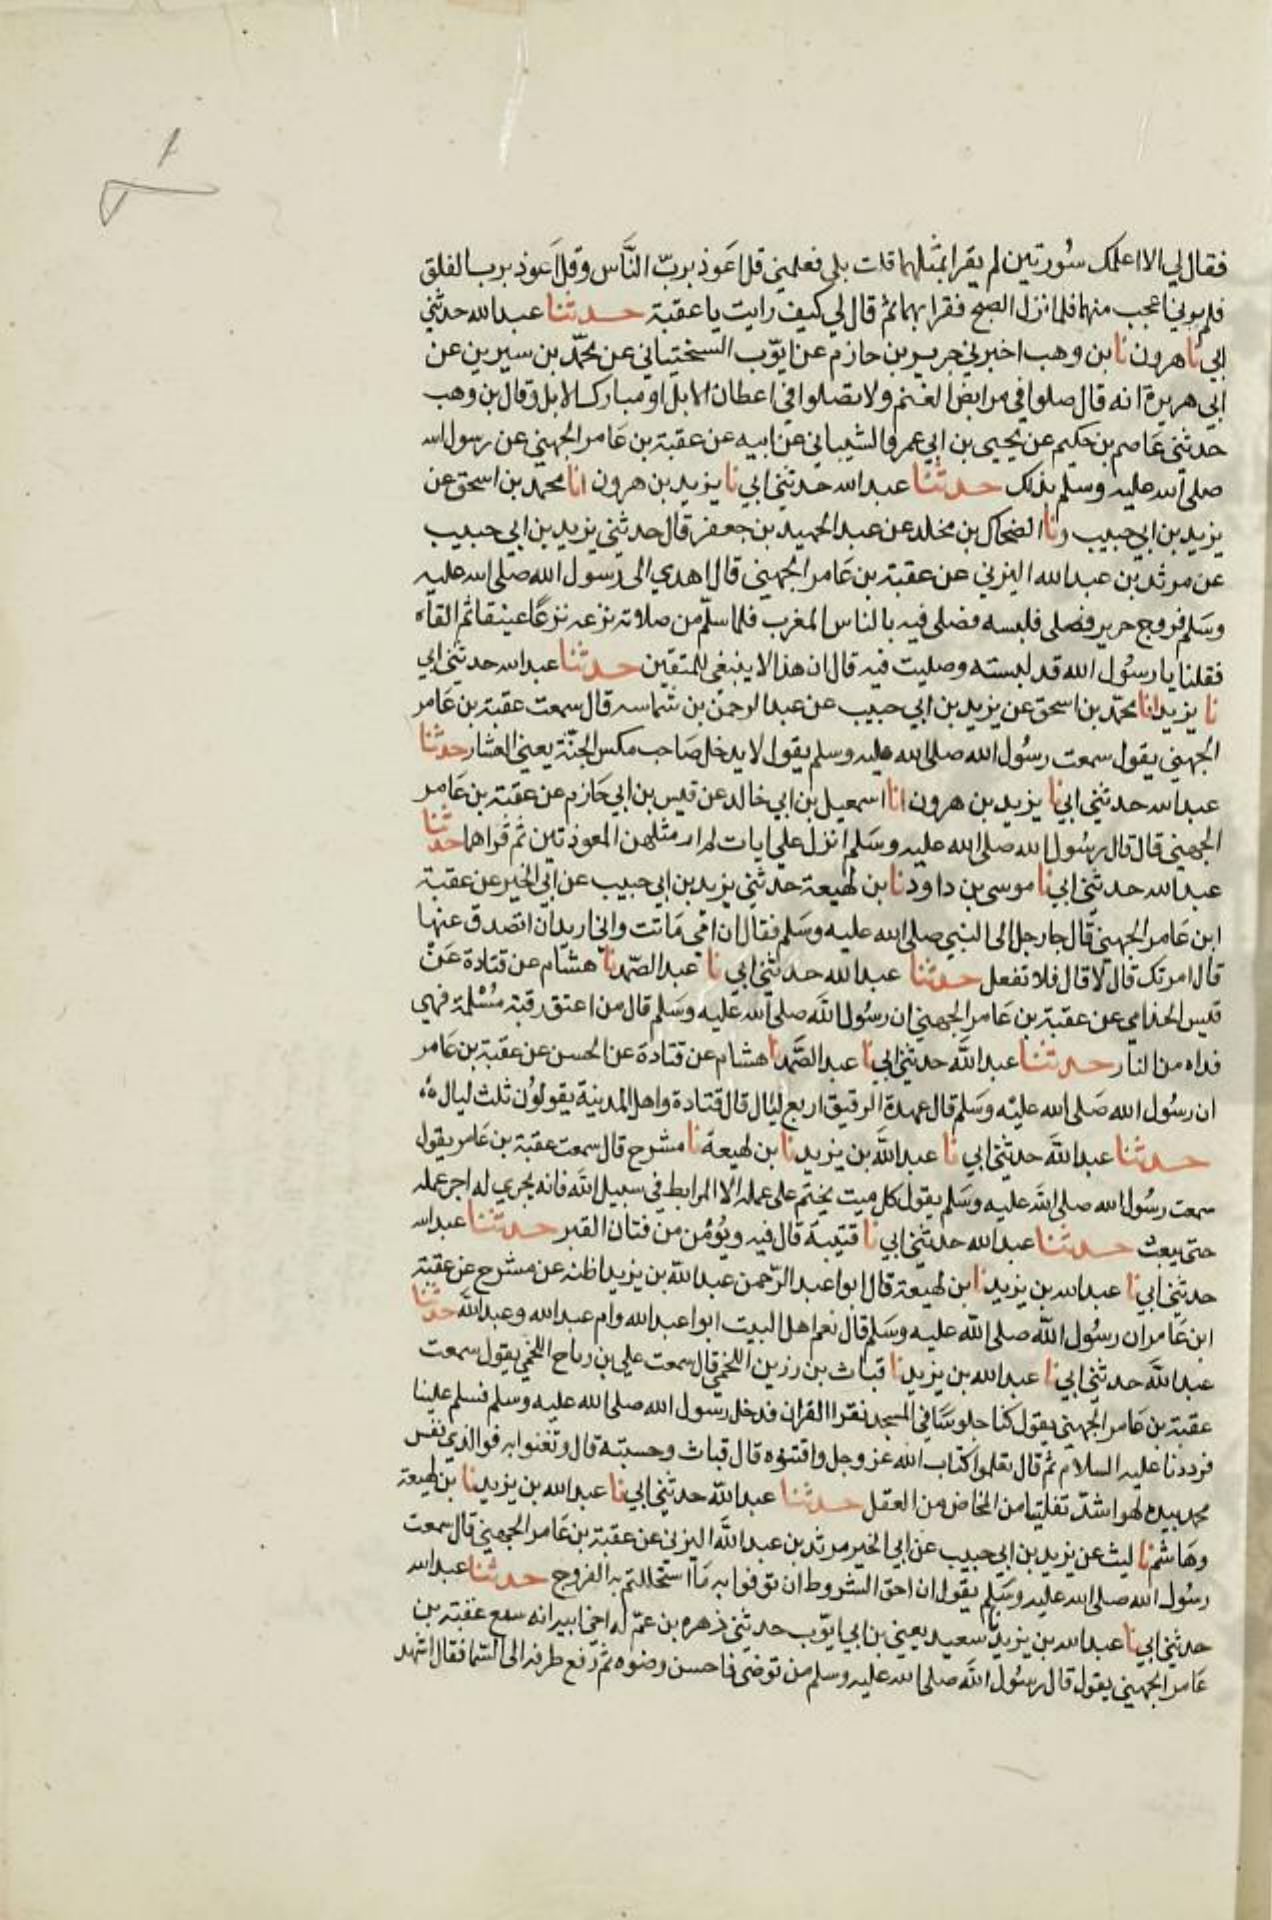 فقال لي الا اعلمك سورتين لم يقرا بمثلهما قلت بلى فعلمني قل اعوذ برب الناس وقل اعوذ برب الفلق
فلم يرني اعجب منهما فلما نزل الصبح فقرا بهما ثم قال لي كيف رايت يا عقبة حدثنا عبد الله حدثني
ابي نا هرون نا بن وهب اخبرني جرير بن حازم عن ايوب السختياني عن محمد بن سيرين عن
ابي هريرة انه قال صلوا في مرابض الغنم ولا تصلوا في اعطان الابل او مبارك الابل وقال بن وهب
حدثني عاصم بن حكيم عن يحيى بن ابي عمرو الشيباني عن ابيه عن عقبة بن عامر الجهني عن رسول الله
صلى الله عليه وسلم بذلك حدثنا عبد الله حدثني ابي نا يزيد بن هرون انا محمد بن اسحق عن
يزيد بن ابي حبيب ونا الضحاك بن مخلد عن عبد الحميد بن جعفر قال حدثني يزيد بن ابي حبيب
عن مرثد بن عبد الله اليزني عن عقبة بن عامر الجهني قال اهدي الى رسول الله صلى الله عليه
وسلم فروج حرير فصلى فلبسه فصلى فيه بالناس المغرب فلما سلم من صلاته نزعه نزعا عنيفا ثم القاه
فقلنا يا رسول الله قد لبسته وصليت فيه قال ان هذا لا ينبغي للمتقين حدثنا عبد الله حدثني ابي
نا يزيد انا محمد بن اسحق عن يزيد بن ابي حبيب عن عبد الرحمن بن شماسه قال سمعت عقبة بن عامر
الجهني يقول سمعت رسول الله صلى الله عليه وسلم يقول لا يدخل صاحب مكس الجنة يعني العشار حدثنا
عبد الله حدثني ابي نا يزيد بن هرون انا اسمعيل بن ابي خالد عن قيس بن ابي حازم عن عقبة بن عامر
الجهني قال قال رسول الله صلى الله عليه وسلم انزل علي ايات لم ار مثلهن المعوذتين ثم قراهما حدثنا
عبد الله حدثني ابي نا موسى بن داود نا بن لهيعة حدثني يزيد بن ابي حبيب عن ابي الخير عن عقبة
ابن عامر الجهني قال جا رجل الى النبي صلى الله عليه وسلم فقال ان امي ماتت واني اريد ان اتصدق عنها
قال امرتك قال لا قال فلا تفعل حدثنا عبد الله حدثني ابي نا عبد الصمد نا هشام عن قتادة عن
قيس الجذامي عن عقبة بن عامر الجهني ان رسول الله صلى الله عليه وسلم قال من اعتق رقبة مسلمة فهي
فداه من النار حدثنا عبد الله حدثني ابي نا عبد الصمد نا هشام عن قتادة عن الحسن عن عقبة بن عامر
ان رسول الله صلى الله عليه وسلم قال عهدة الرقيق اربع ليال قال قتادة واهل المدينة يقولون ثلث ليال
حدثنا عبد الله حدثني ابي نا عبد الله بن يزيد نا بن لهيعة نا مشرح قال سمعت عقبة بن عامر يقول
سمعت رسول الله صلى الله عليه وسلم يقول كل ميت يختم على عمله الا المرابط في سبيل الله فانه يجري له اجر عمله
حتى يبعث حدثنا عبد الله حدثني ابي نا قتيبة قال فيه ويؤمن من فتان القبر حدثنا عبد الله
حدثني ابي نا عبد الله بن يزيد نا ابن لهيعة قال ابوا عبد الرحمن عبد الله بن يزيد اظنه عن مشرح عن عقبة
ابن عامر ان رسول الله صلى الله عليه وسلم قال نعم اهل البيت ابوا عبد الله وام عبد الله وعبد الله حدثنا
عبد الله حدثني ابي نا عبد الله بن يزيد نا قباث بن رزين اللخمي قال سمعت علي بن رباح اللخمي يقول سمعت
عقبة بن عامر الجهني يقول كنا جلوسا في المسجد نقرا القران فدخل رسول الله صلى الله عليه وسلم فسلم علينا
فرددنا عليه السلام ثم قال تعلموا كتاب الله عز وجل واقتنوه قال قباث وحسبته قال وتغنوا به فوالذي نفس
محمد بيده لهو اشد تفلتا من المخاض من العقل حدثنا عبد الله حدثني ابي نا عبد الله بن يزيد نا بن لهيعة
وهاشم نا ليث عن يزيد بن ابي حبيب عن ابي الخير مرثد بن عبد الله اليزني عن عقبة بن عامر الجهني قال سمعت
رسول الله صلى الله عليه وسلم يقول ان احق الشروط ان توفوا به ما استحللتم به الفروج حدثنا عبد الله
حدثني ابي نا عبد الله بن يزيد نا سعيد يعني بن ابي ايوب حدثني زهره بن عم له اخي ابيه انه سمع عقبة بن
عامر الجهني يقول قال رسول الله صلى الله عليه وسلم من توضى فاحسن وضوه ثم رفع طرفه الى السما فقال اشهد